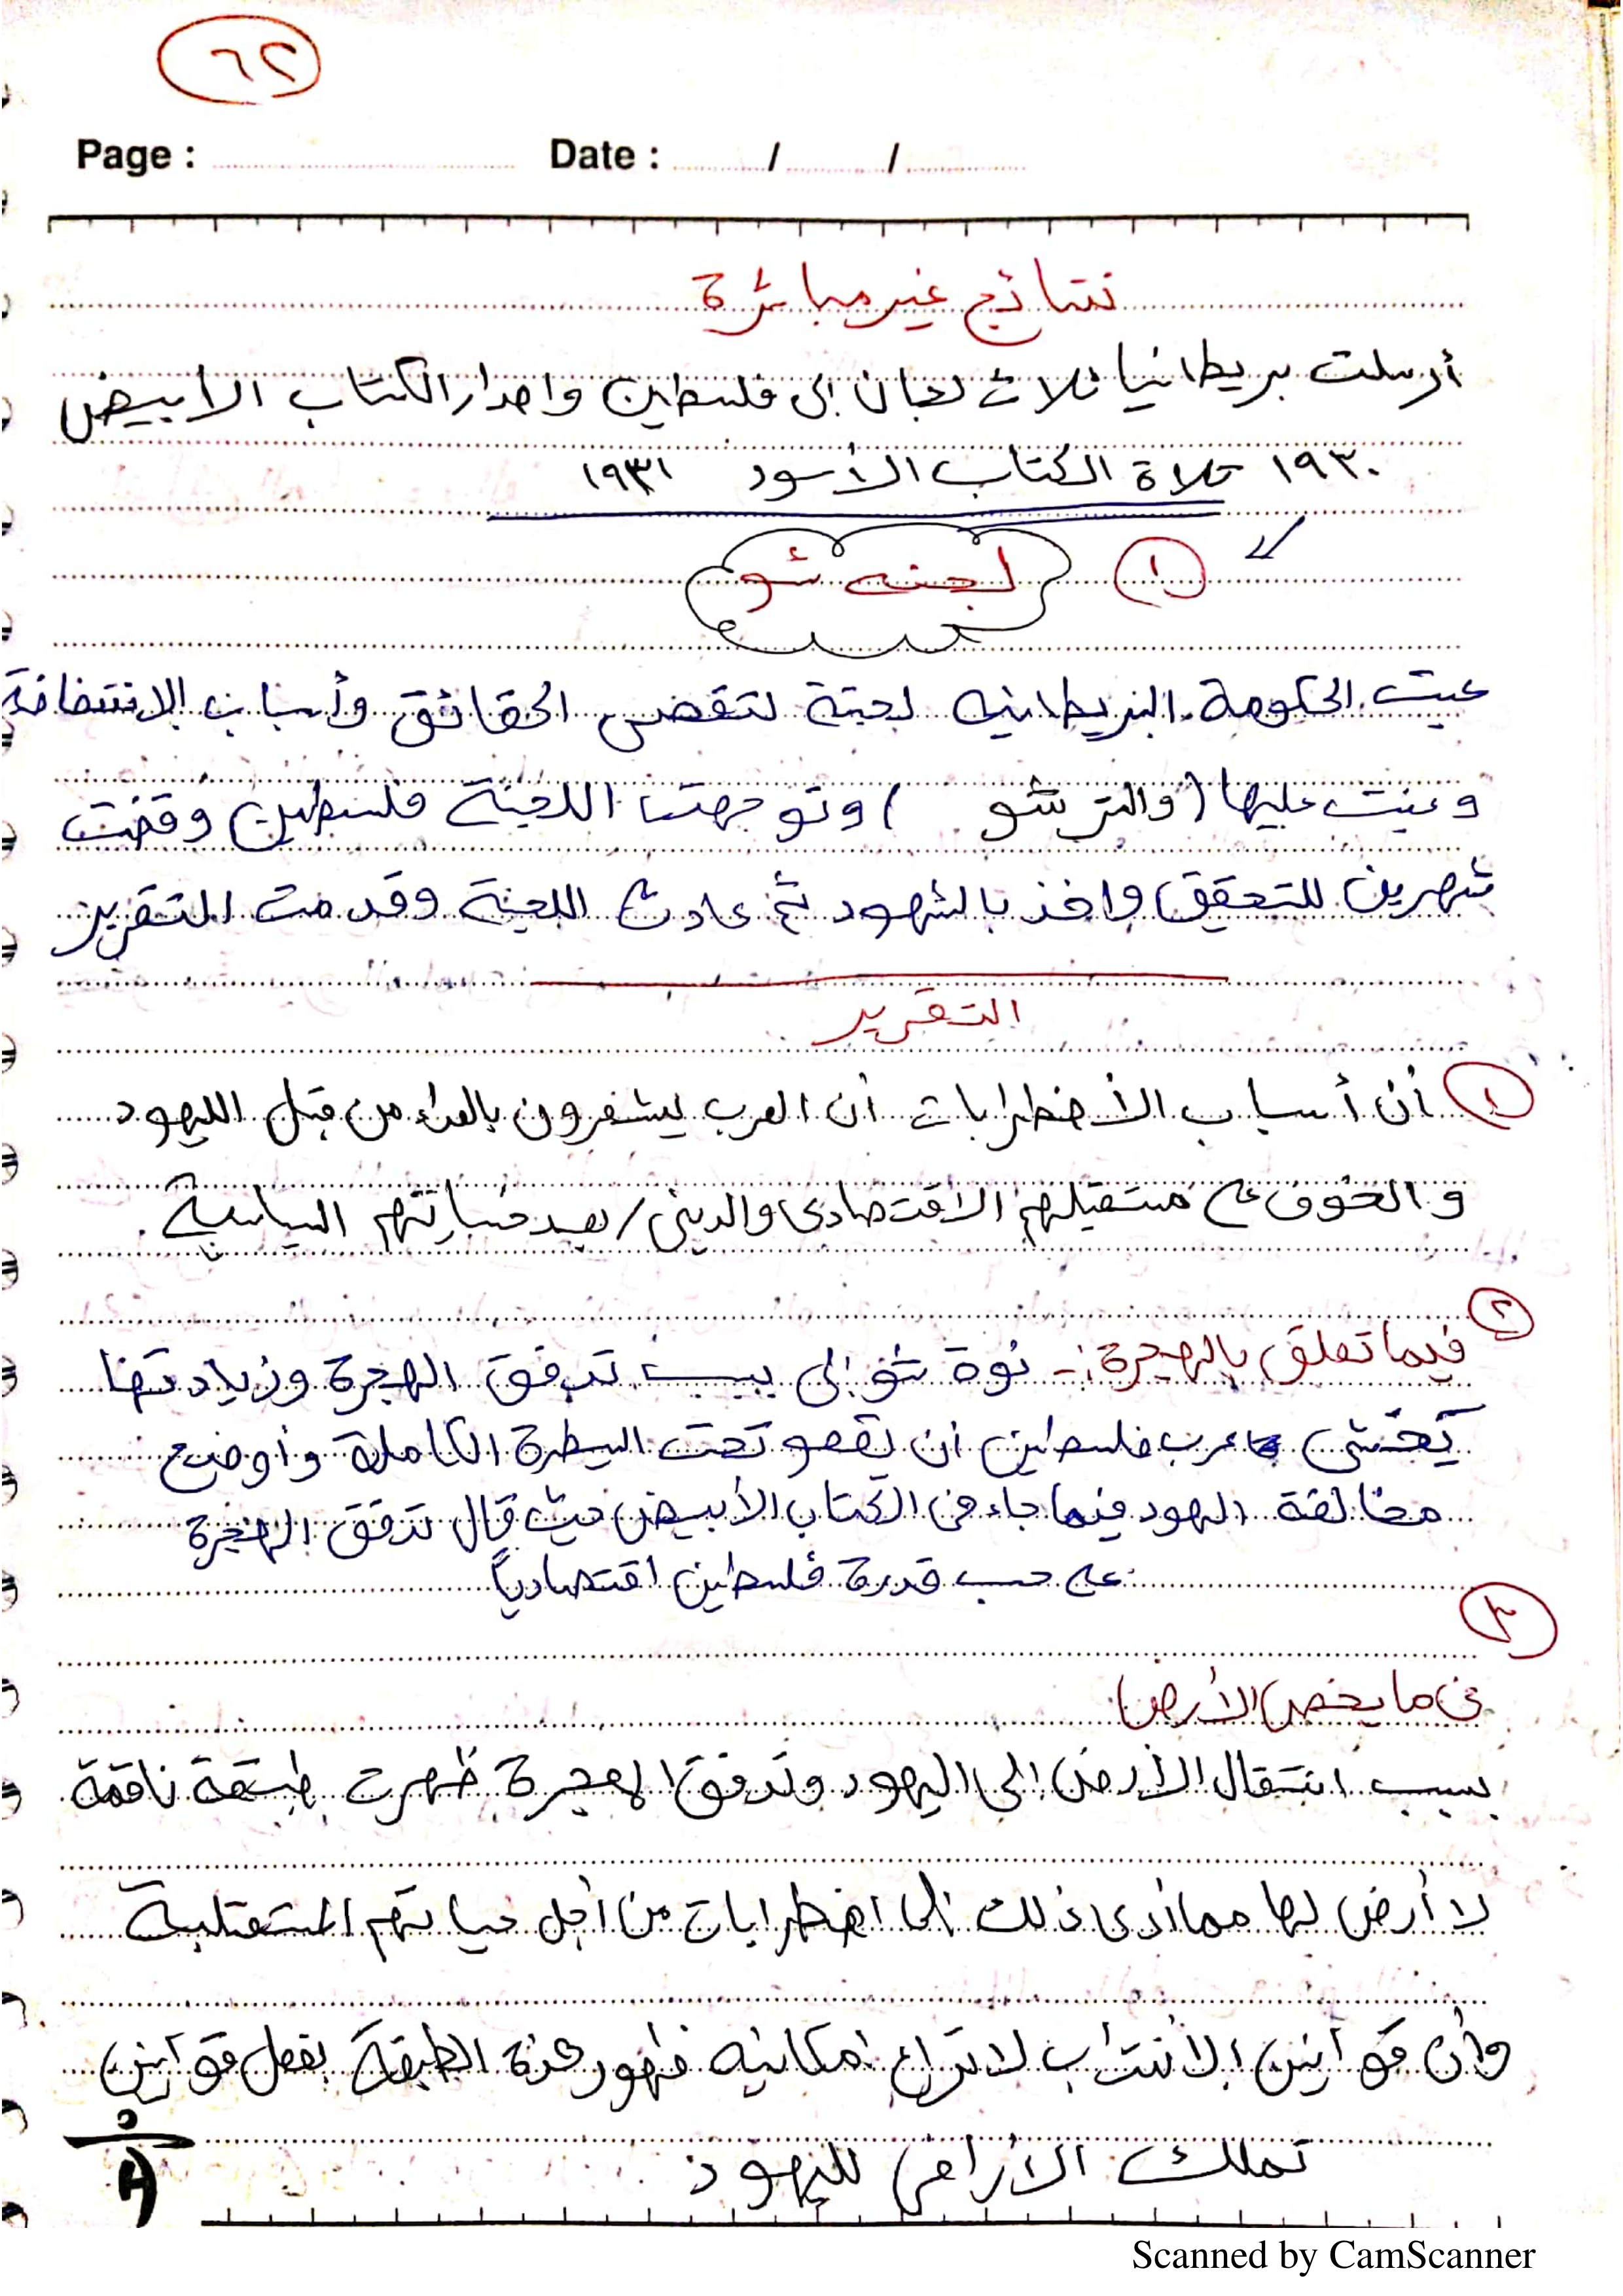 ٦٢
Page : Date : / /
نتائج غير مباشرة
أرسلت بريطانيا ثلاث لجان الى فلسطين واصدار الكتاب الابيض
١٩٣٠ تلاة الكتاب الأسود ١٩٣١
١ لجنه شو
عينت الحكومة البريطانيه لجنة لتقصي الحقائق وأسباب الانتفاضة
وعينت عليها (والتر شو ) وتوجهت اللجنة فلسطين وقضت
شهرين للتحقيق واخذ بالشهود ثم عادت اللجنة وقدمت التقرير
التقرير
١ أن أسباب الأضطرابات أن العرب يشعرون بالعداء من قبل اليهود
والخوف على مستقبلهم الاقتصادى والدينى / بعد السياسية .
٢
فيما تعلق بالهجرة :- نوة شو إلى بسبب تدفق الهجرة وزيادتها
يخشى عرب فلسطين أن يقعو تحت السيطرة الكاملة وأوضح
مخالفة اليهود فيما جاء فى الكتاب الأبيض حيث قال تدفق الهجرة
على حسب قدرة فلسطين اقتصادياً
٣
فى ما يخص الأرض
بسبب انتقال الأرض إلى اليهود وتدفق الهجرة ظهرت طبقة ناقمة
لا أرض لها مما أدى ذلك إلى اضطرابات من أجل حياتهم المستقبلية
وأن قوانين الأنتداب لا تراع امكانيه ظهور هذة الطبقة بفعل قوانين
تملك الأراضى لليهود
Scanned by CamScanner